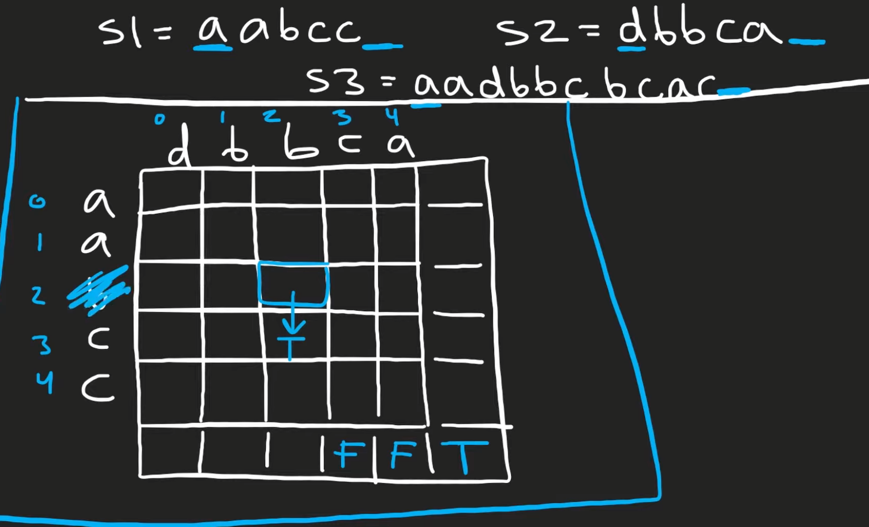 s1 = aabcc_ s2 = dbbca_
s3 = aadbbcbcac_
0 1 2 3 4
d b b c a
0 a
1 a
2
3 c
T
4 c
F F T